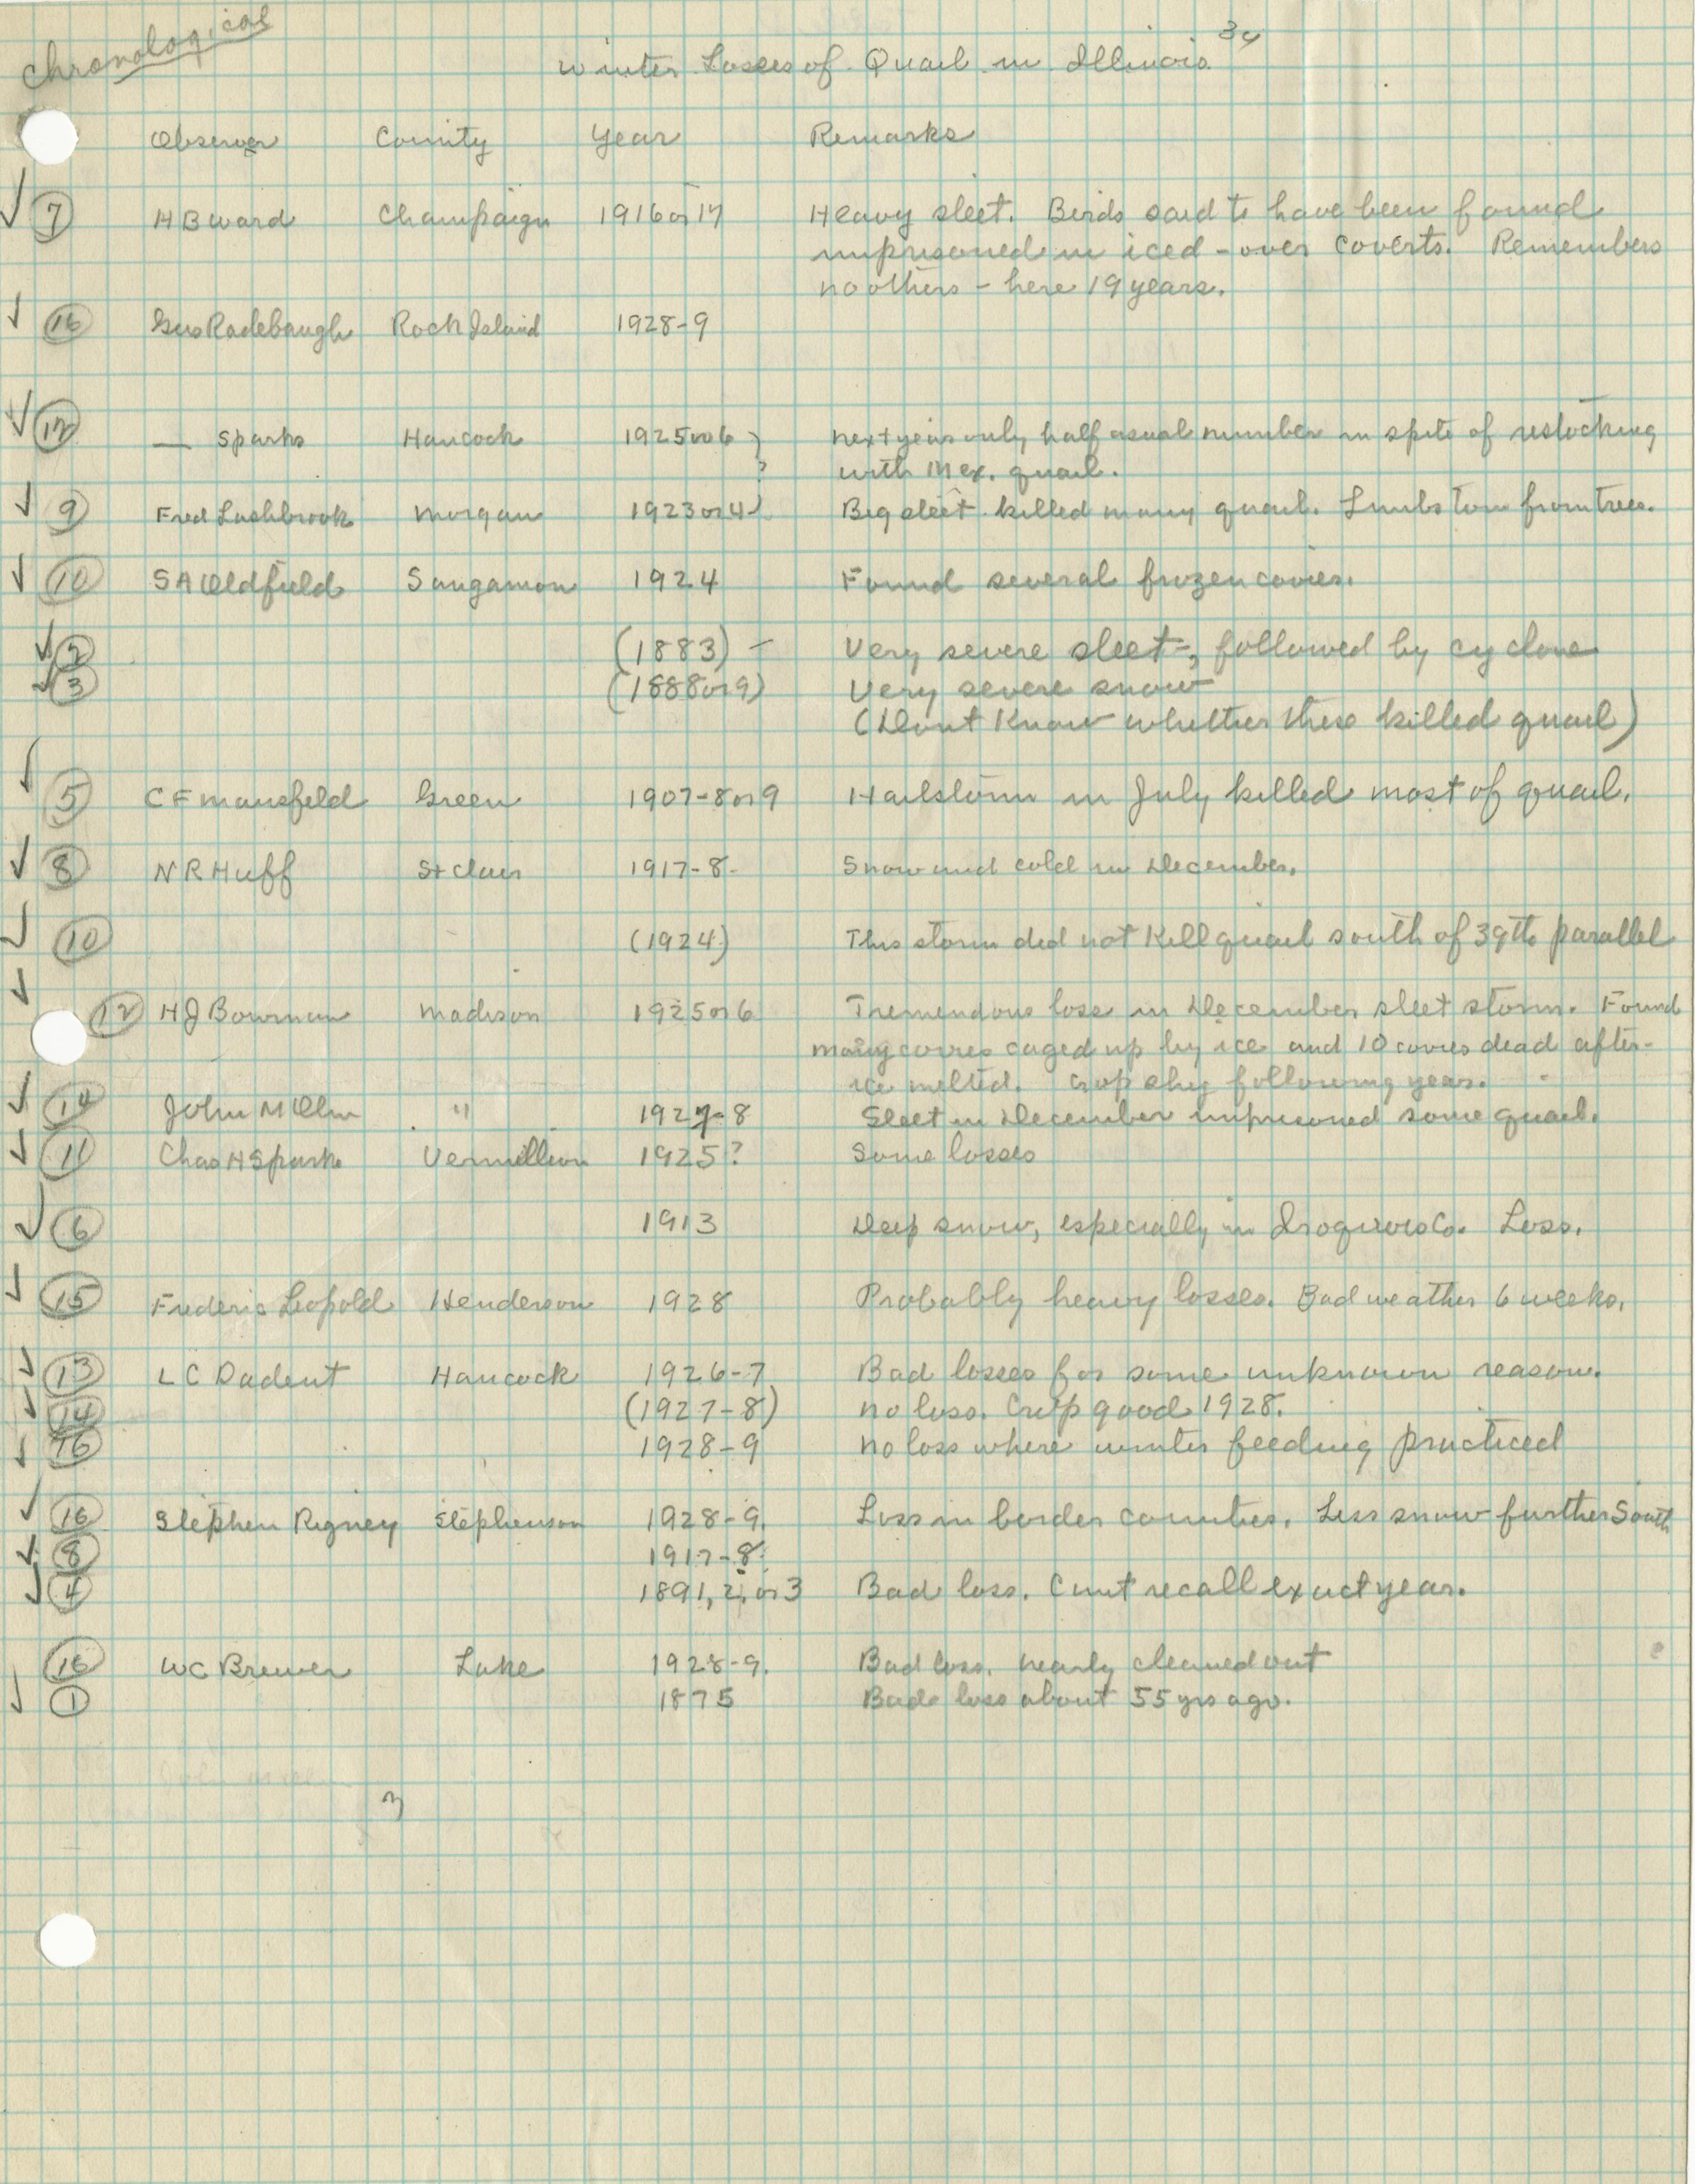 Chronological
34
Winter Losses of Quail in Illinois
Observer County Year Remarks
7 H B Ward Champaign 1916 or 17 Heavy sleet. Birds said to have been found
imprisoned in iced-over coverts. Remembers
no others - here 19 years.
16 Gus Radebaugh Rock Island 1928-9
12 — Sparks Hancock 1925 or 6 ? Next year only half usual number in spite of restocking
with Mex. quail.
9 Fred Lashbrook Morgan 1923 or 4 Big sleet killed many quail. Limbs torn from trees.
10 S A Oldfield Sangamon 1924 Found several frozen covies.
2 (1883) - Very severe sleet, followed by cyclone
3 (1888 or 9) Very severe snow
(Dont know whether these killed quail)
5 C F Mansfield Green 1907-8 or 9 Hailstorm in July killed most of quail.
8 N R Huff St Clair 1917-8 Snow and cold in December.
10 (1924) This storm did not kill quail south of 39th parallel
12 H J Bowman Madison 1925 or 6 Tremendous loss in December sleet storm. Found
many covies caged up by ice and 10 covies dead after
ice melted. Crop shy following year.
14 John M Olin " 1927-8 Sleet in December imprisoned some quail.
11 Chas H Sparks Vermillion 1925? Some losses
6 1913 Deep snow, especially in Iroquois Co. Loss.
15 Frederic Leopold Henderson 1928 Probably heavy losses. Bad weather 6 weeks.
13 L C Dadent Hancock 1926-7 Bad losses for some unknown reason.
14 (1927-8) No loss. Crop good 1928.
16 1928-9 No loss where winter feeding practiced
16 Stephen Rigney Stephenson 1928-9. Loss in border counties. Less snow further South
8 1917-8.
4 1891, 2, or 3 Bad loss. Cant recall exact year.
16 W C Brewer Lake 1928-9. Bad loss. Nearly cleaned out
1 1875 Bad loss about 55 yrs ago.